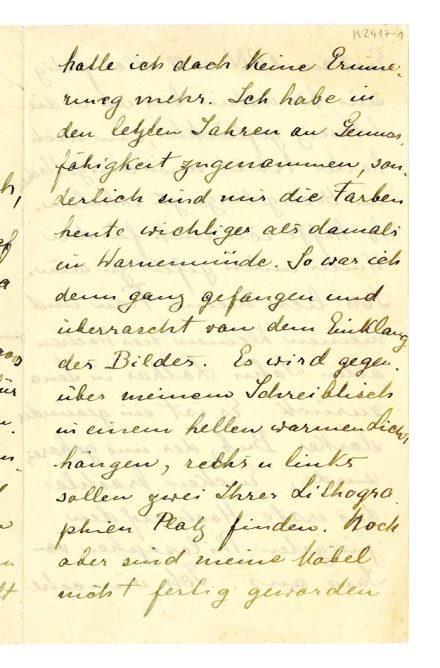 K2417-1
hatte ich doch keine Erinne-
rung mehr. Ich habe in
den letzten Jahren an Genuss
fähigkeit zugenommen, son-
derlich sind mir die Farben
heute wichtiger als damals
in Warnemünde. So war ich
denn ganz gefangen und
überrascht von dem Einklang
des Bildes. Es wird gegen-
über meinem Schreibtisch
in einem hellen warmen Licht
hängen, rechts u links
sollen zwei Ihrer Lithogra-
phien Platz finden. Noch
aber sind meine Möbel
nicht fertig geworden